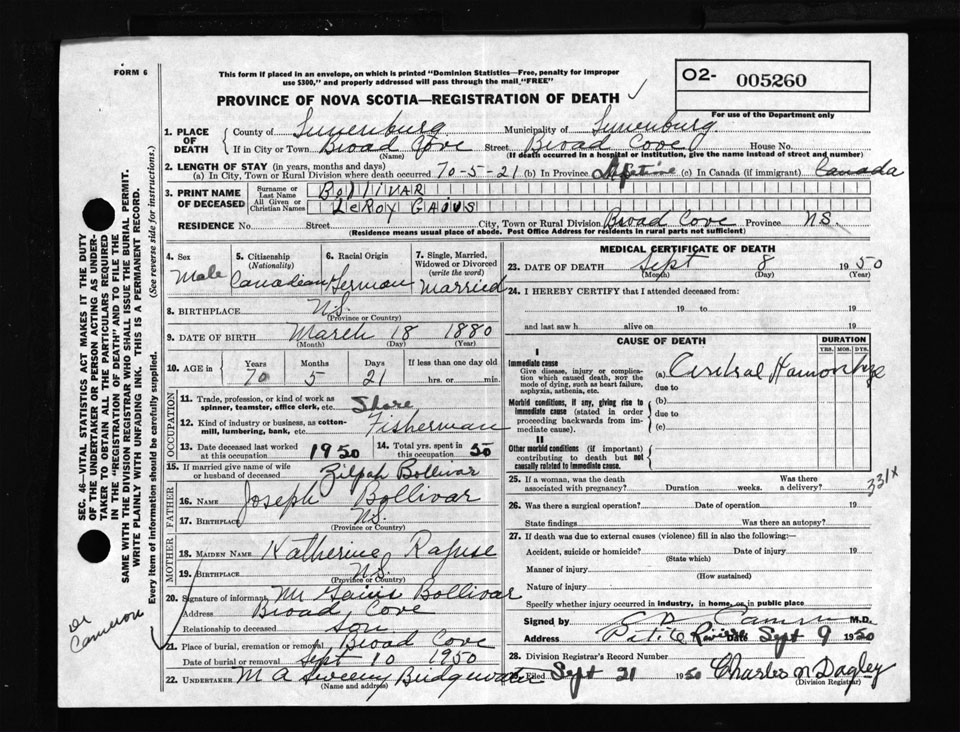 FORM 6
This form if placed in an envelope, on which is printed "Dominion Statistics—Free, penalty for improper
use $300," and properly addressed will pass through the mail "FREE"
PROVINCE OF NOVA SCOTIA—REGISTRATION OF DEATH
O2- 005260
For use of the Department only
1. PLACE OF DEATH { County of Lunenburg Municipality of Lunenburg
If in City or Town Broad Cove Street Broad Cove House No.
(Name) (If death occurred in a hospital or institution, give the name instead of street and number)
2. LENGTH OF STAY (in years, months and days)
(a) In City, Town or Rural Division where death occurred 70-5-21 (b) In Province Lifetime (c) In Canada (if immigrant) Canada
3. PRINT NAME OF DECEASED { Surname or Last Name BOLLIVAR
All Given or Christian Names LEROY GAIUS
RESIDENCE No. Street City, Town or Rural Division Broad Cove Province NS
(Residence means usual place of abode. Post Office Address for residents in rural parts not sufficient)
4. Sex Male
5. Citizenship (Nationality) Canadian
6. Racial Origin German
7. Single, Married, Widowed or Divorced (write the word) Married
8. BIRTHPLACE NS.
(Province or Country)
9. DATE OF BIRTH March 18 1880
(Month) (Day) (Year)
10. AGE in { Years Months Days If less than one day old
70 5 21 hrs. or min.
OCCUPATION
11. Trade, profession, or kind of work as spinner, teamster, office clerk, etc. Shore
12. Kind of industry or business, as cotton-mill, lumbering, bank, etc. Fisherman
13. Date deceased last worked at this occupation 1950
14. Total yrs. spent in this occupation 50
15. If married give name of wife or husband of deceased Zilpah Bollivar
FATHER
16. NAME Joseph Bollivar
17. BIRTHPLACE NS.
(Province or Country)
MOTHER
18. MAIDEN NAME Katherine Rafuse
19. BIRTHPLACE NS.
(Province or Country)
20. Signature of informant Mr Gaius Bollivar
Address Broad Cove
Relationship to deceased son
21. Place of burial, cremation or removal Broad Cove
Date of burial or removal Sept 10 1950
22. UNDERTAKER M A Sweeny Bridgewater
(Name and address)
MEDICAL CERTIFICATE OF DEATH
23. DATE OF DEATH Sept 8 1950
(Month) (Day) (Year)
24. I HEREBY CERTIFY that I attended deceased from:
19 to 19
and last saw h alive on 19
CAUSE OF DEATH
DURATION
YRS. MOS. DYS.
I
Immediate cause
Give disease, injury or complication which caused death, not the mode of dying, such as heart failure, asphyxia, asthenia, etc.
(a) Ceribral Hamorrhge
due to
Morbid conditions, if any, giving rise to immediate cause (stated in order proceeding backwards from immediate cause).
(b)
due to
(c)
II
Other morbid conditions (if important) contributing to death but not causally related to immediate cause.
331x
25. If a woman, was the death associated with pregnancy? Duration weeks. Was there a delivery?
26. Was there a surgical operation? Date of operation 19
State findings Was there an autopsy?
27. If death was due to external causes (violence) fill in also the following:—
Accident, suicide or homicide? Date of injury 19
(State which)
Manner of injury
(How sustained)
Nature of injury
Specify whether injury occurred in industry, in home, or in public place
Signed by Cameron M.D.
Address Petite Riviere Date Sept 9 1950
28. Division Registrar's Record Number
Filed Sept 21 1950 Charles N Dagley
(Division Registrar)
SEC. 46—VITAL STATISTICS ACT MAKES IT THE DUTY
OF THE UNDERTAKER OR PERSON ACTING AS UNDER-
TAKER TO OBTAIN ALL THE PARTICULARS REQUIRED
IN THE "REGISTRATION OF DEATH" AND TO FILE THE
SAME WITH THE DIVISION REGISTRAR WHO SHALL ISSUE THE BURIAL PERMIT.
WRITE PLAINLY WITH UNFADING INK. THIS IS A PERMANENT RECORD.
Every item of information should be carefully supplied. (See reverse side for instructions.)
Dr
Cameron